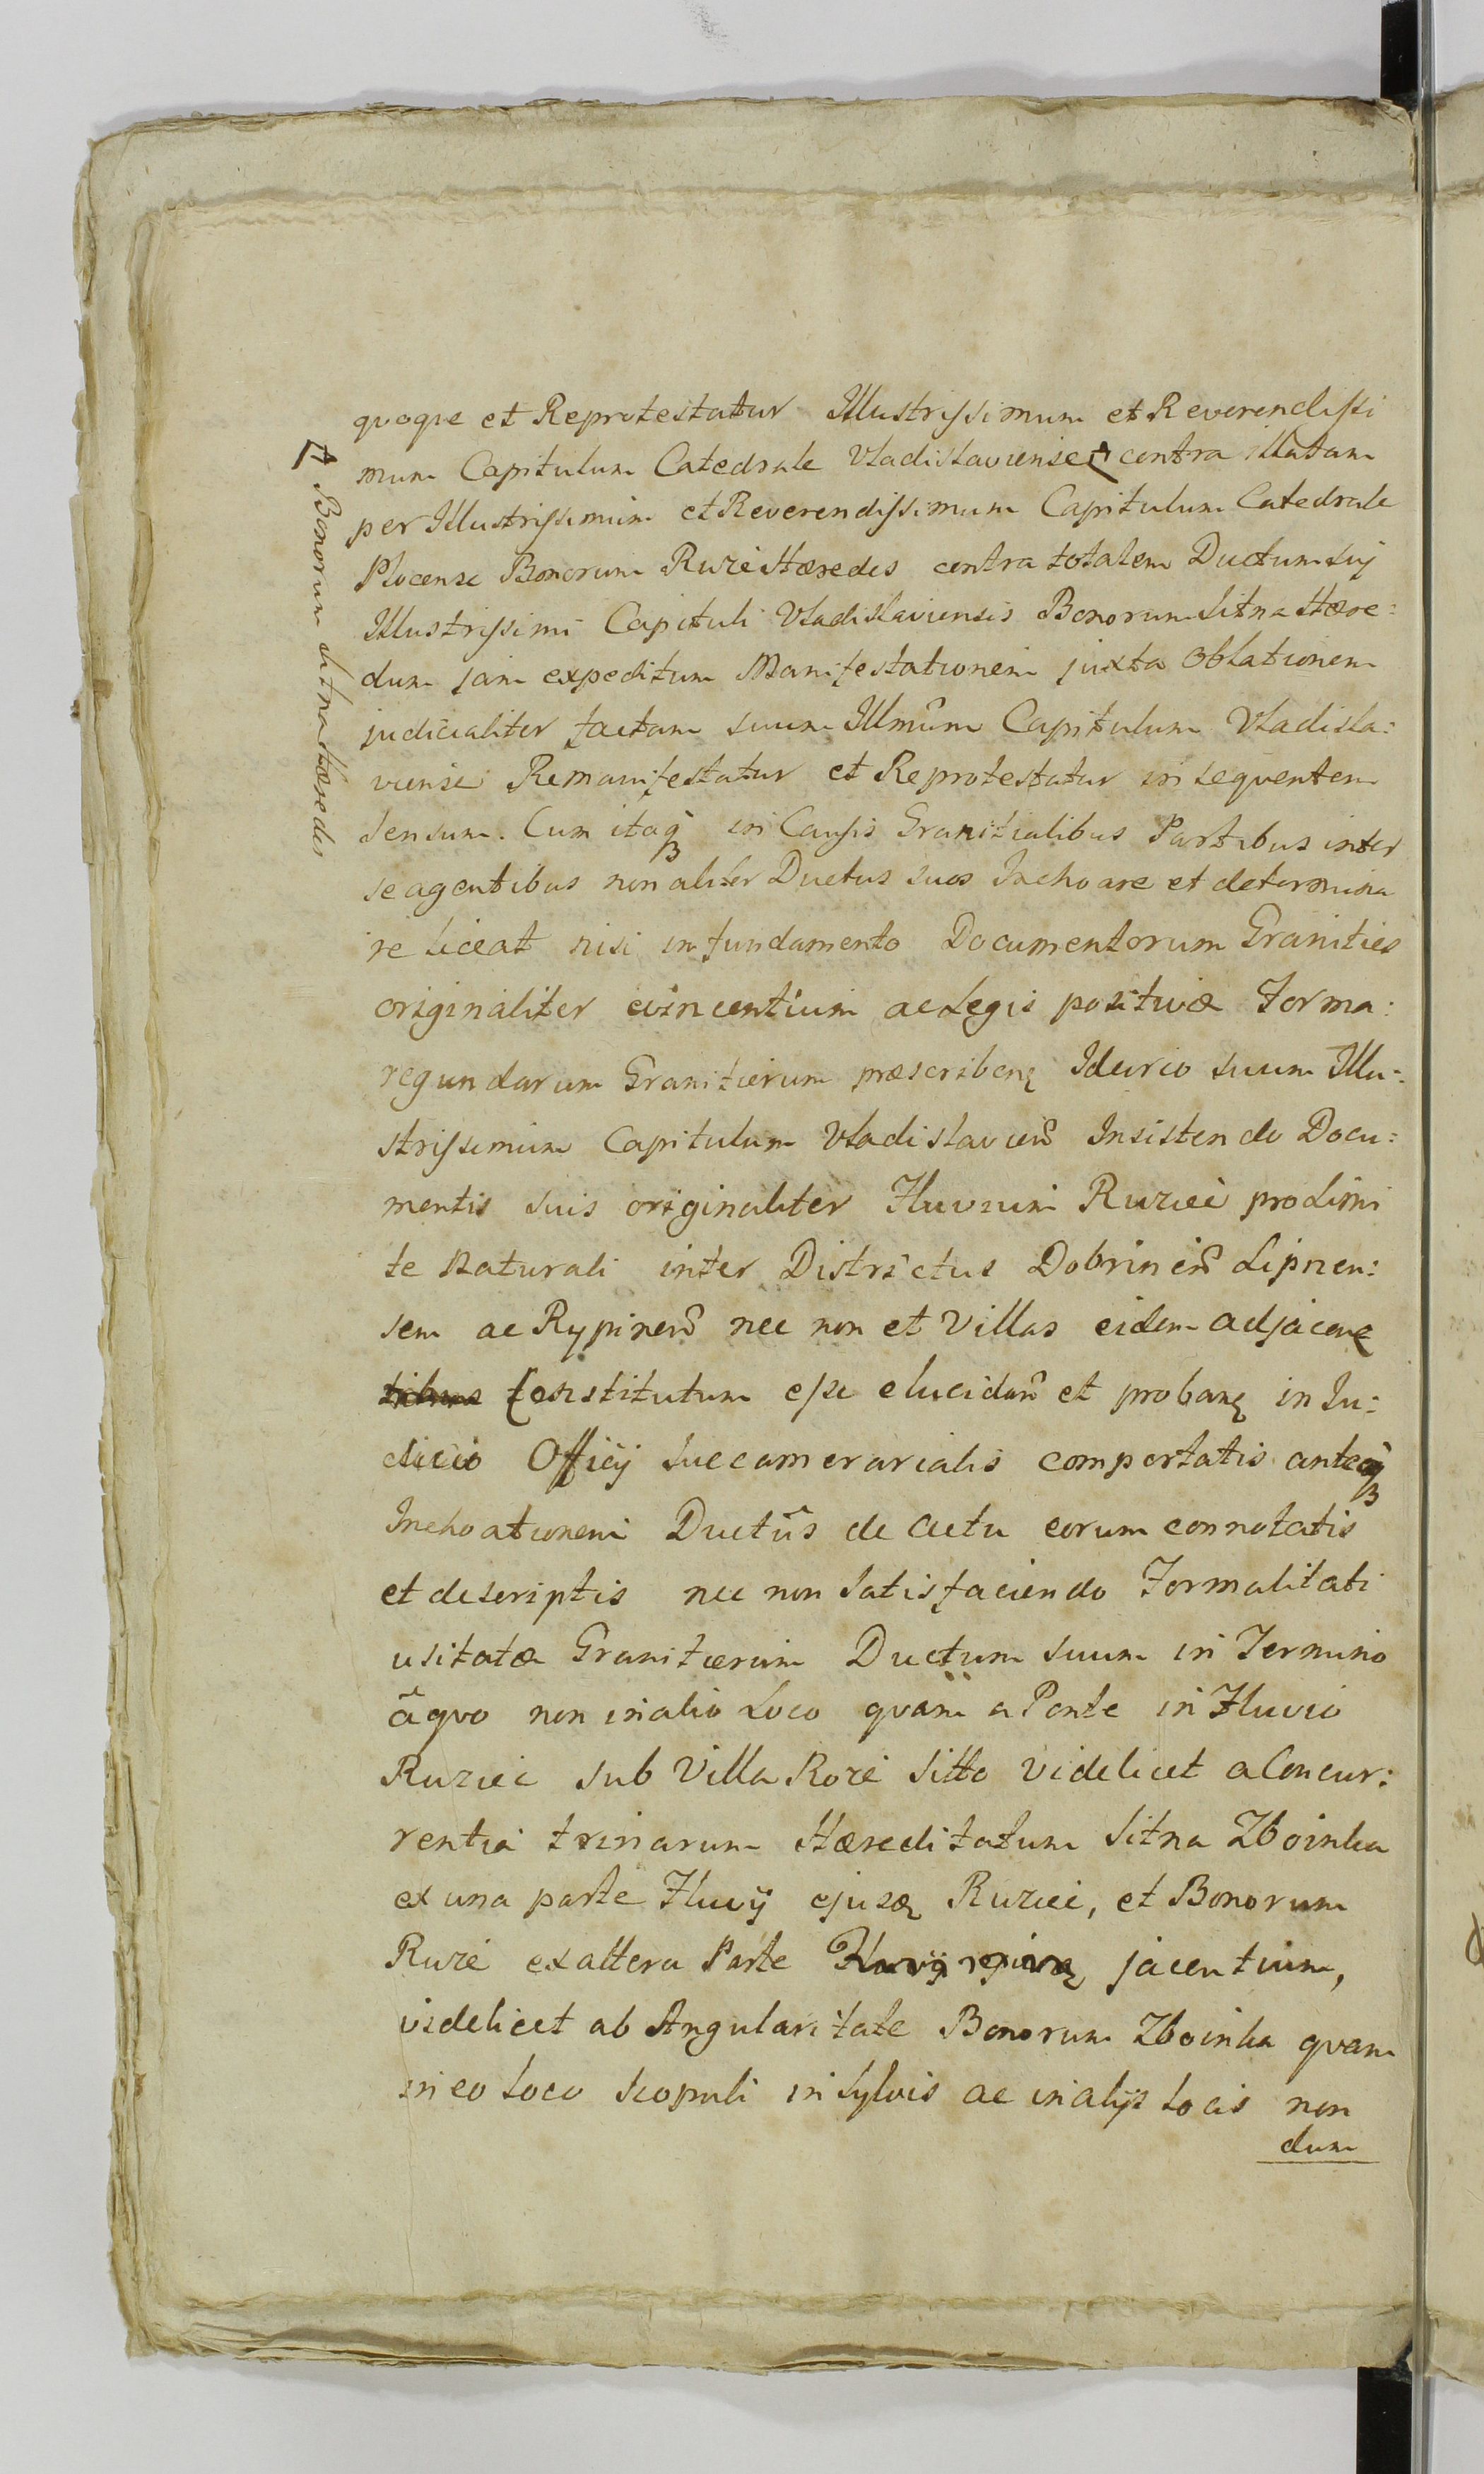 quoque et Reprotestatur Illustrissimum et Reverendissi
mum Capitulum Catedrale Vladislaviense contra illatam
per Illustrissimum et Reverendissimum Capitulum Catedrale
Plocense Bonorum Ruże Hæredes contra totalem Ductum sui
Illustrissimi Capituli Vladislaviensis Bonorum Sitna Hære:
dum jam expeditum Manifestationem juxta Oblationem
judicialiter factam suum Illmum Capitulum Vladisla:
viense Remanifestatur et Reprotestatur in sequentem
Sensum. Cum itaq in Causis Granitialibus Partibus inter
se agentibus non aliter Ductus suos Inchoare et determina
re liceat nisi in fundamento Documentorum Granities
originaliter evincentium ac Legis positivæ Forma:
regundarum Granitierum præscriben Idcirco suum Illu:
strissimum Capitulum Vladislavien Insistendo Docu:
mentis suis originaliter Fluvium Ruziec pro Limi
te Naturali inter Districtus Dobrinen Lipnen:
sem ac Rypinen nec non et Villas eidem adjacen
tibus Constitutum esse elucidan et proban in Iu:
dicio Officij Succamerarialis comportatis anteq
Inchoationem Ductûs de Actu eorum connotatis
et descriptis nec non Satisfaciendo Formalitati
usitatæ Granitierum Ductum suum in Termino
â quo non in alio Loco quam a Ponte in Fluvio
Ruziec sub Villa Roże Sitto videlicet a Concur:
rentia trinarum Hæreditatum Sitna Zboinka
ex una parte Fluvij ejusd Ruziec, et Bonorum
Ruże ex altera Parte Fluvij jacentium,
videlicet ab Angularitate Bonorum Zboinka quam
in eo Loco Scopuli in Sylvis ac in alijs Locis non
dum
Bonorum Sitna Hæredes